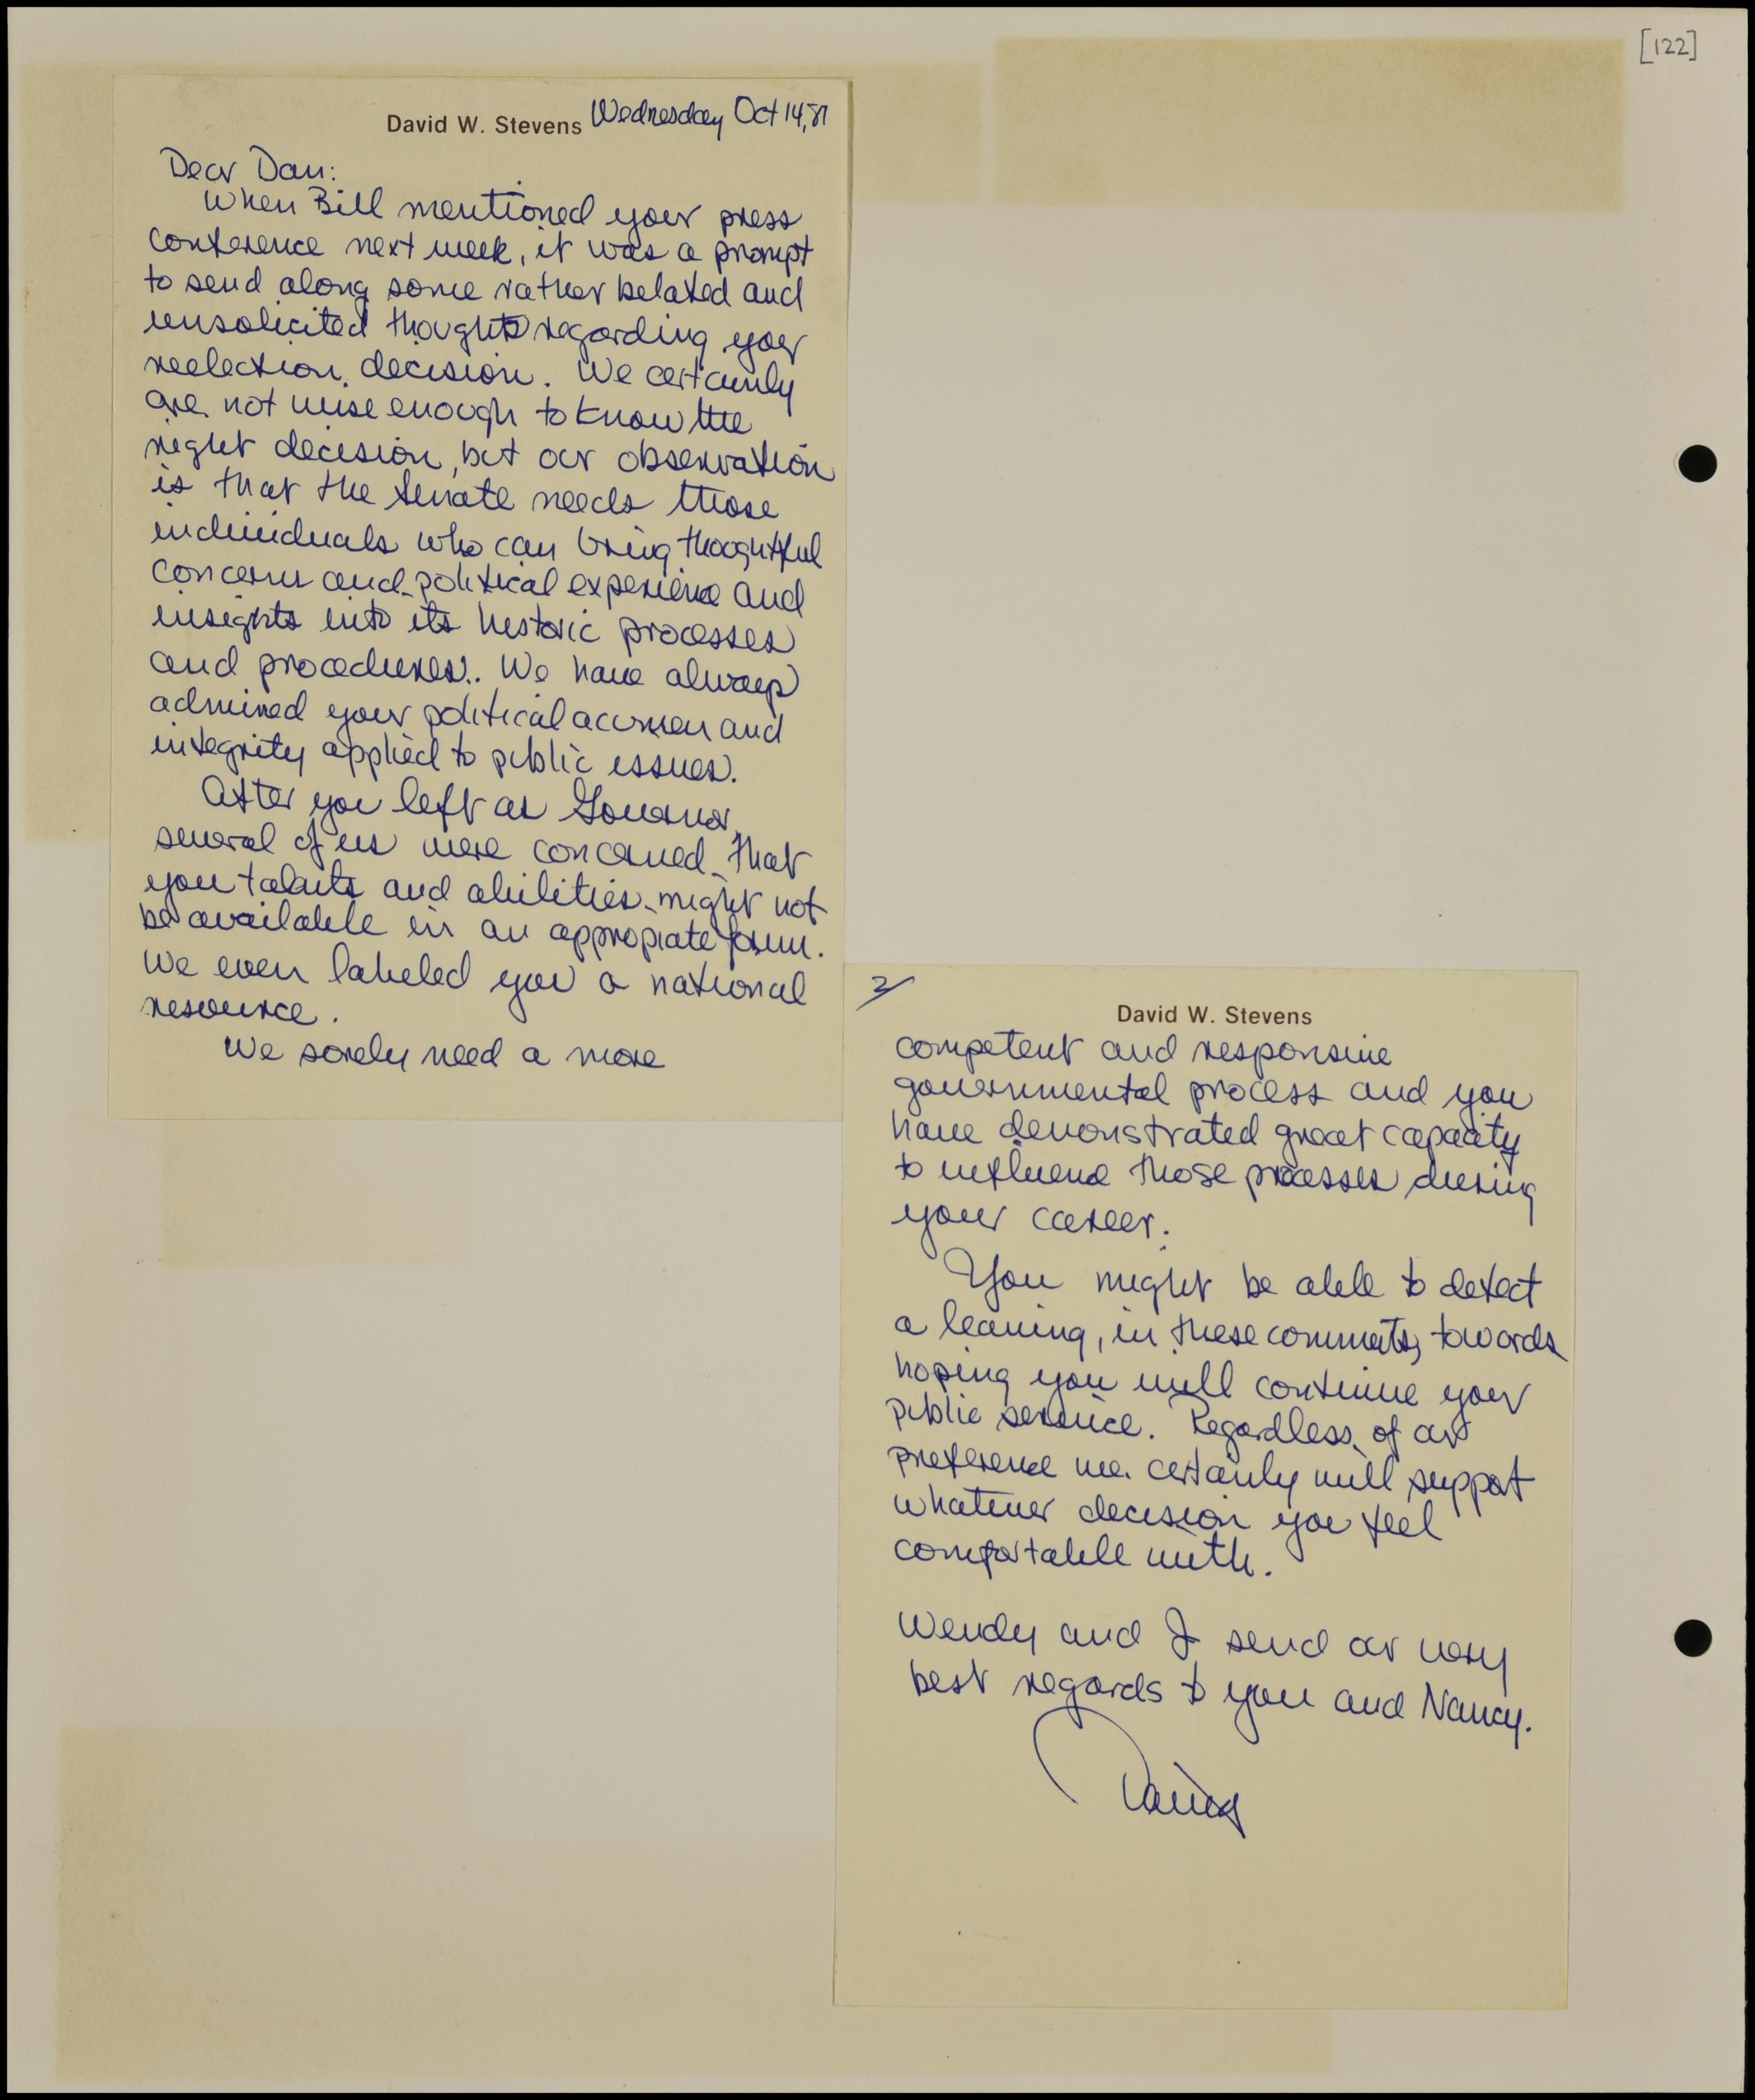 [122]
David W. Stevens Wednesday Oct 14, 87
Dear Dan:
When Bill mentioned your press
conference next week, it was a prompt
to send along some rather belated and
unsolicited thoughts regarding your
reelection decision. We certainly
are not wise enough to know the
right decision, but our observation
is that the Senate needs those
individuals who can bring thoughtful
concern and political experience and
insights into its historic processes
and procedures. We have always
admired your political acumen and
integrity applied to public issues.
After you left as Governor,
several of us were concerned that
you talents and abilities might not
be available in an appropiate forum.
We even labeled you a national
resource.
We sorely need a more
2/
David W. Stevens
competent and responsive
governmental process and you
have demonstrated great capacity
to influence those processes during
your career.
You might be able to detect
a leaning, in these comments, towards
hoping you will continue your
public service. Regardless of our
preference we certainly will support
whatever decision you feel
comfortable with.
Wendy and I send our very
best regards to you and Nancy.
David